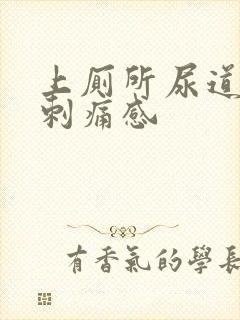 上廁所尿道
刺痛感
有香氣的學長